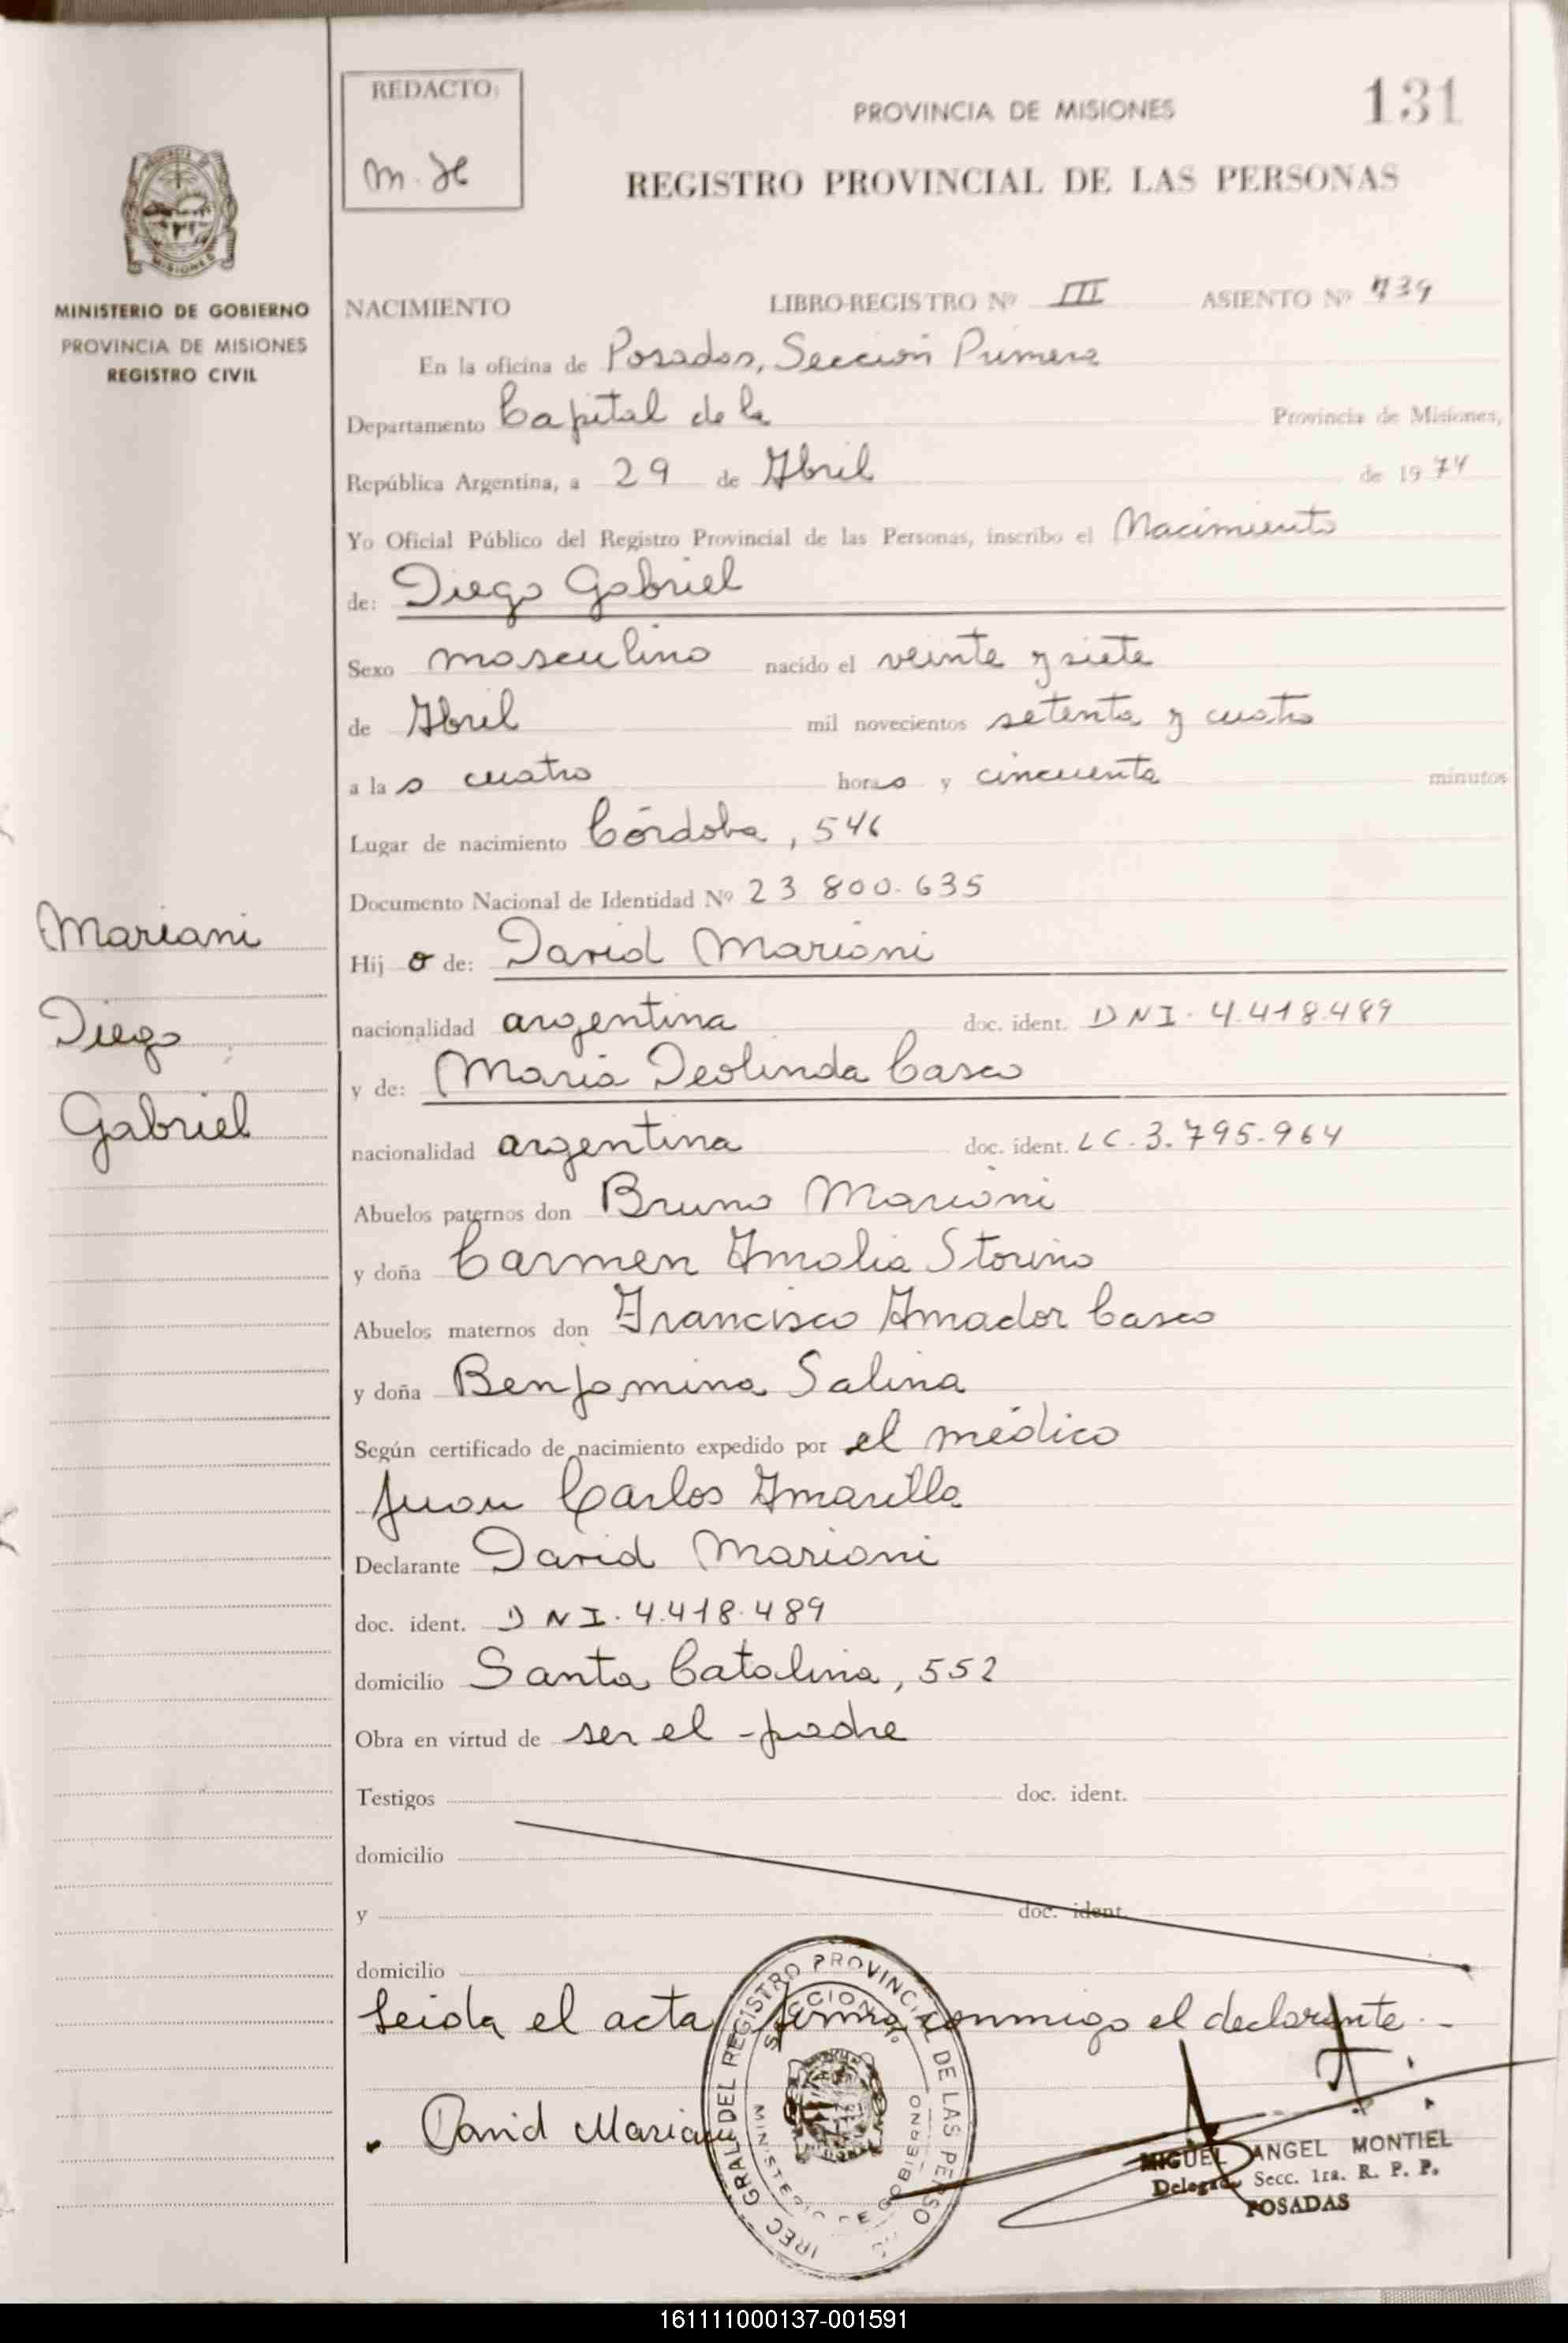 REDACTO:
131
PROVINCIA DE MISIONES
REGISTRO PROVINCIAL DE LAS PERSONAS
MISIONES
MINISTERIO DE GOBIERNO
PROVINCIA DE MISIONES
REGISTRO CIVIL
NACIMIENTO LIBRO-REGISTRO Nº III ASIENTO Nº 739
En la oficina de Posadas, Sección Primera
Departamento Capital de la Provincia de Misiones,
República Argentina, a 29 de Abril de 1974
Yo Oficial Público del Registro Provincial de las Personas, inscribo el Nacimiento
de: Diego Gabriel
Sexo masculino nacido el veinte y siete
de Abril mil novecientos setenta y cuatro
a las cuatro horas y cincuenta minutos
Lugar de nacimiento Córdoba, 546
Documento Nacional de Identidad Nº 23 800.635
Mariani
Diego
Gabriel
Hijo de: David Mariani
nacionalidad argentina doc. ident. DNI. 4.418.489
y de: María Deolinda Casco
nacionalidad argentina doc. ident. LC. 3.795.964
Abuelos paternos don Bruno Mariani
y doña Carmen Amalia Storino
Abuelos maternos don Francisco Amador Casco
y doña Benjamina Salina
Según certificado de nacimiento expedido por el médico
Juan Carlos Amarilla
Declarante David Mariani
doc. ident. DNI. 4.418.489
domicilio Santa Catalina, 552
Obra en virtud de ser el padre
Testigos doc. ident.
domicilio
y doc. ident.
domicilio
Leida el acta firma conmigo el declarante.-
David Mariani
GRAL DEL REGISTRO PROVINCIAL DE LAS PERSO
MINISTERIO DE GOBIERNO
MIGUEL ANGEL MONTIEL
Delegado Secc. 1ra. R. P. P.
POSADAS
161111000137-001591